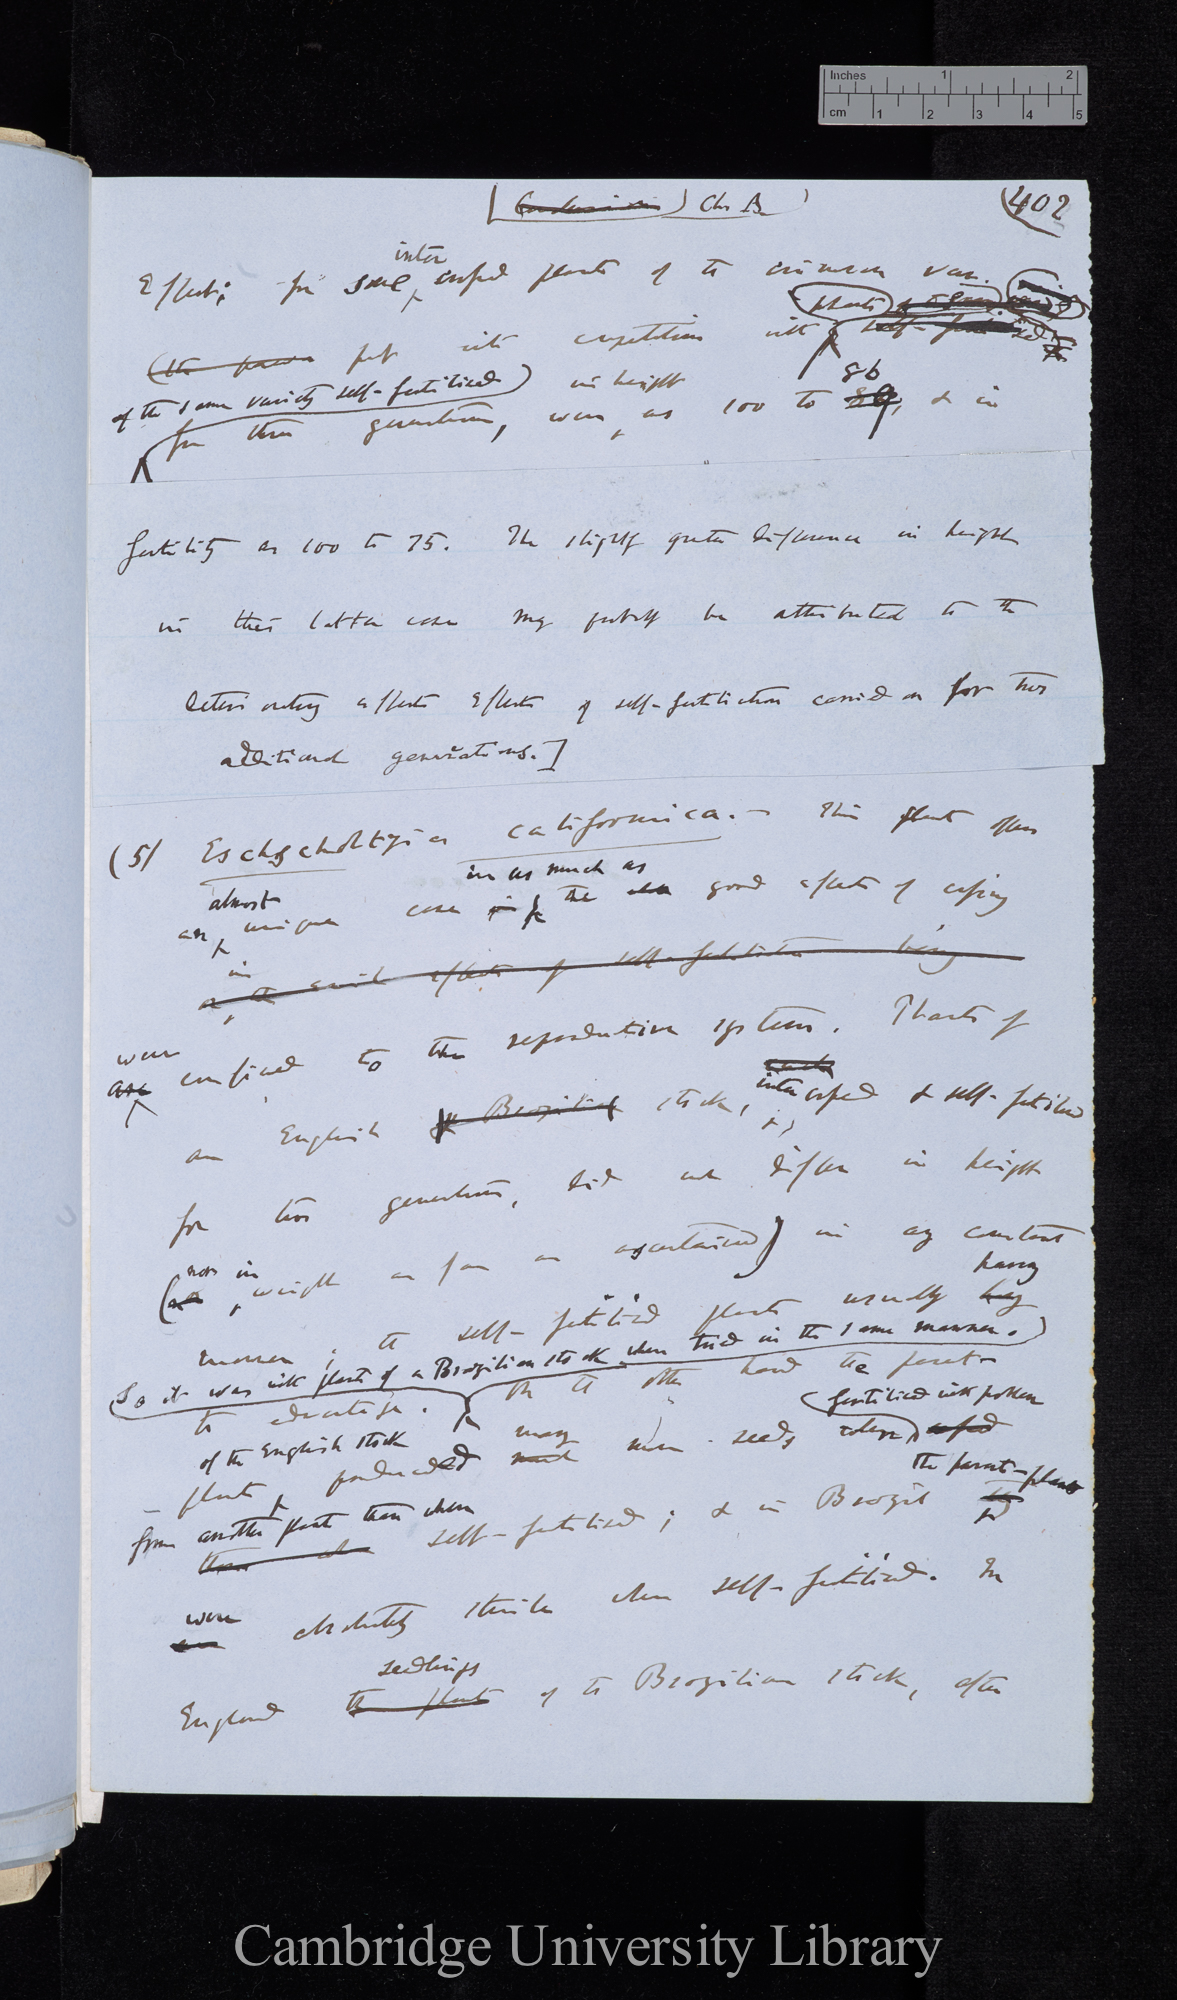 Inches 1 2
cm 1 2 3 4 5
(Conclusion) Ch. B.
402
inter
Effect; for some crossed plants of the crimson var.
plants of
put into competition with self-fertilised
of the same variety self-fertilised) in height
86
for three generations, were as 100 to 89, & in
fertility as 100 to 75. The slightly greater difference in height
in this latter case may probably be attributed to the
deteriorating effects effects of self-fertilisation carried on for two
additional generations.]
(5) Eschscholtzia californica.— This plant offers
almost in as much as
an unique case in the good effects of crossing
in
or the evil effects of self-fertilisation being
were
are confined to the reproductive system. Plants of
inter
an English or Brazilian stock, crossed & self-fertilised
for two generations, did not differ in height
(nor in weight as far as ascertained) in any constant
having
manner; the self-fertilised plants usually
So it was with plants of a Brazilian stock when tried in the same manner.)
the advantage. On the other hand the parent-
fertilised with pollen
of the English stock many
plants produced much more seeds when crossed
the parent-plants
from another plant than when
than when self-fertilised; & in Brazil the
were
are absolutely sterile when self-fertilised. In
seedlings
England the plants of the Brazilian stock, after
Cambridge University Library